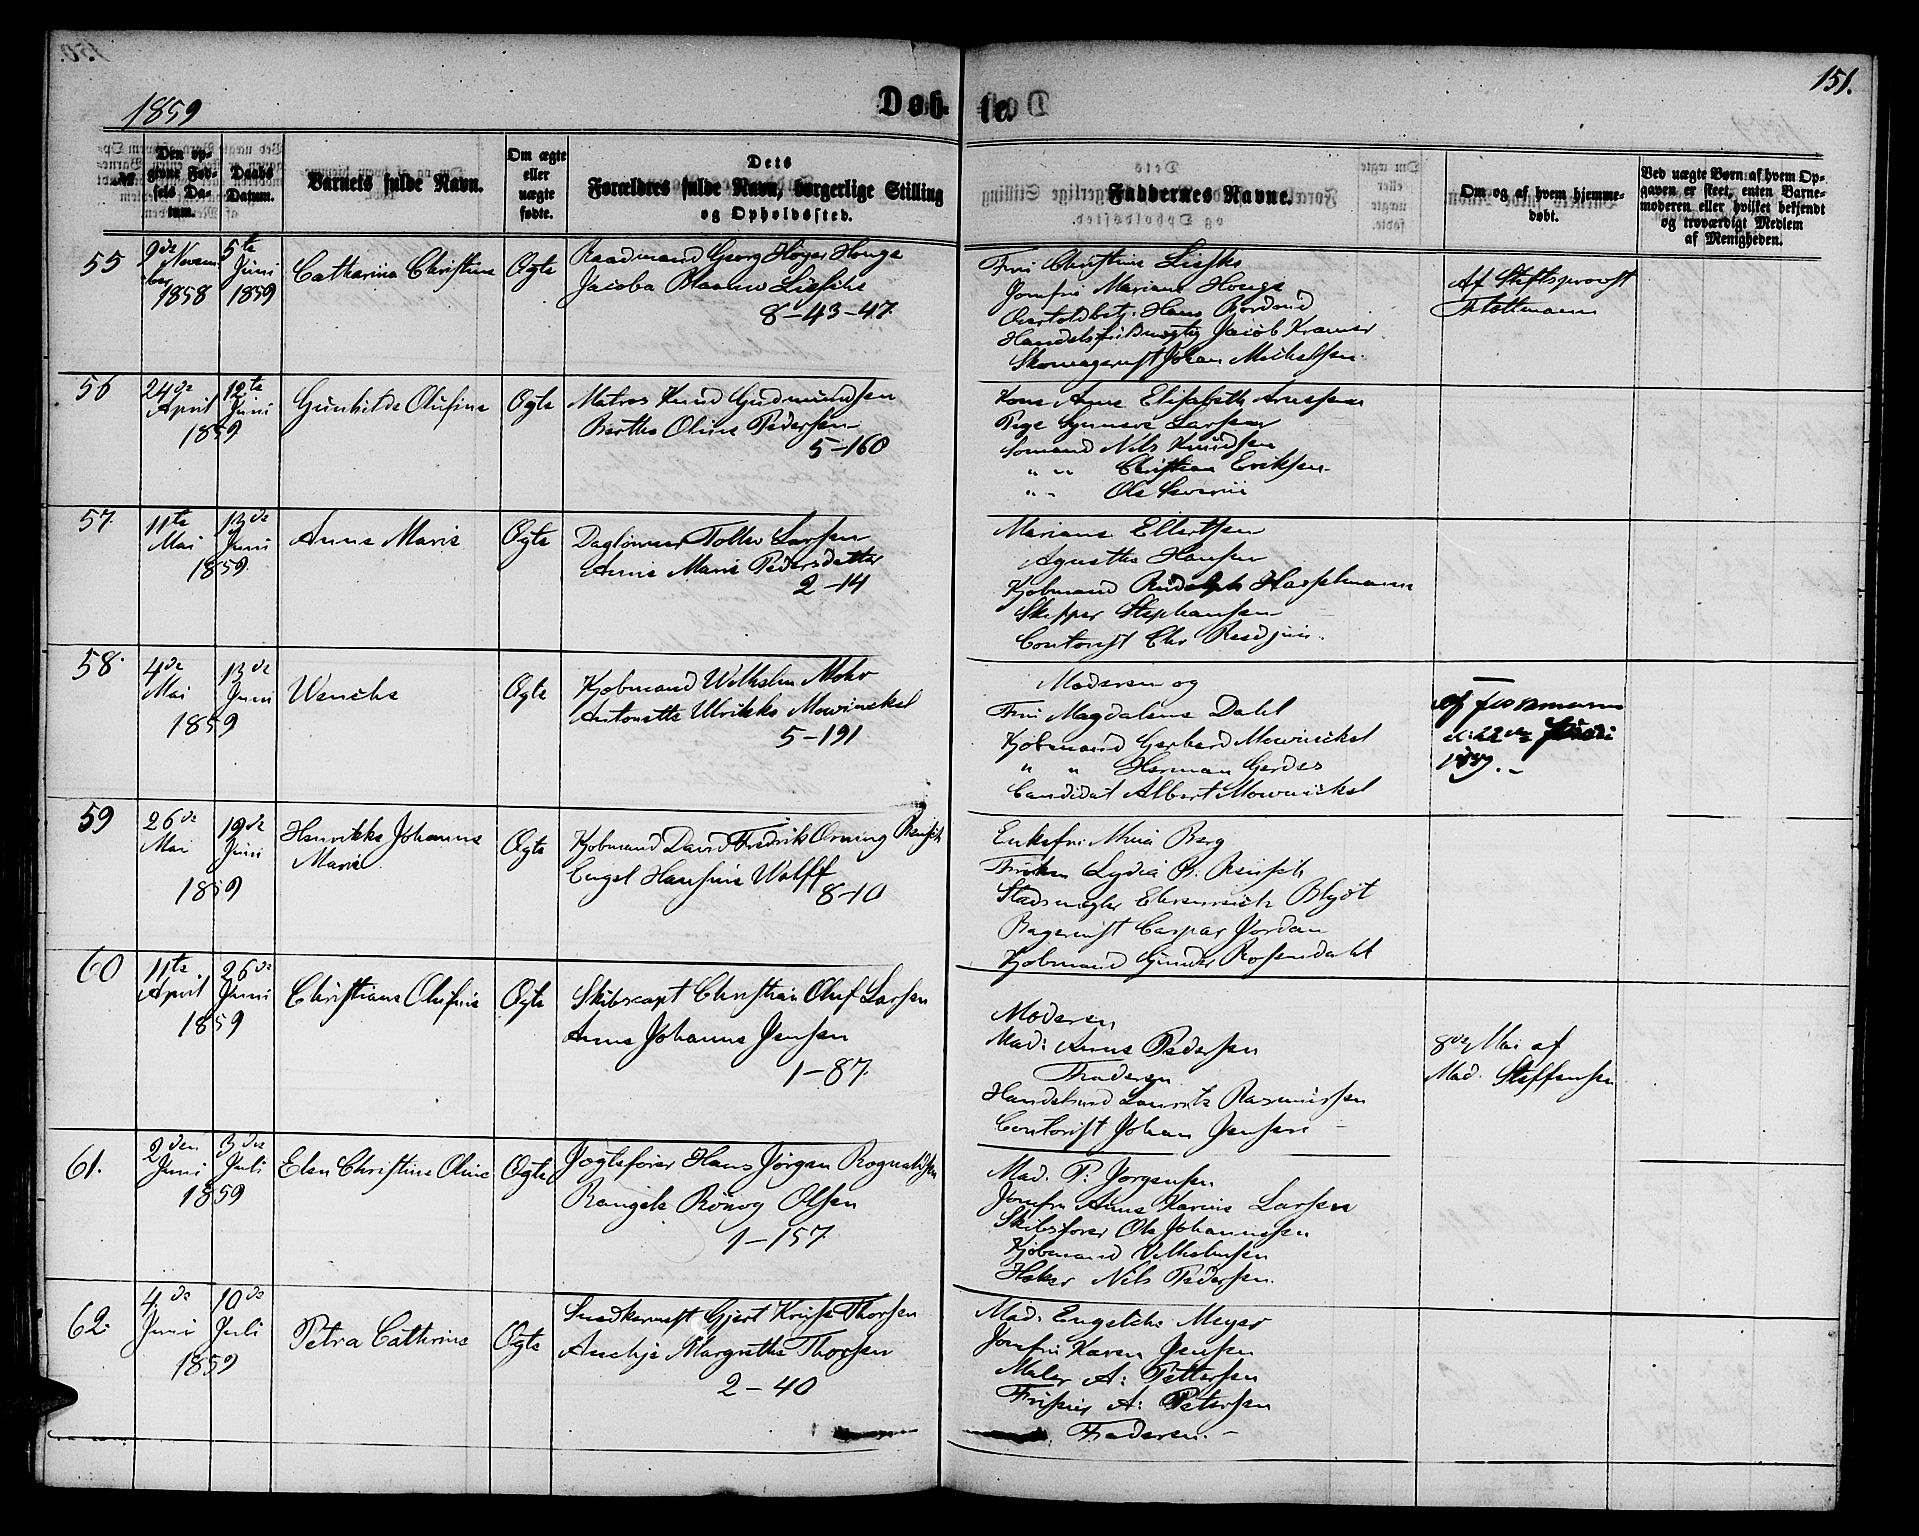 151.
1859
Døb- te.
№
Den op-
givne Fød-
sels Da-
tum.
Daabs
Datum.
Barnets fulde Navn.
Om ægte
eller
uægte
fødte.
Dets
Forældres fulde Navn, borgerlige Stilling
og Opholdssted.
Faddernes Navne.
Om og af hvem hjemme-
døbt.
Ved uægte Børn: af hvem Op-
gaven er skeet, enten Barne-
moderen eller hvilket bekjendt
og troværdigt Medlem
af Menigheden.
55
9de Novem-
ber
1858
5te
Juni
1859
Catharina Christine
Ægte
Raadmand Georg Höyer Houge
Jacoba Blaauw
8-43-47.
Fru Christine
Jomfru Mariane Houge
Hans
Jacob Kramer
Skomagermst Johan Michelsen.
Af Stiftsprovst
56
24de
April
12te
Juni
1859
Gunhilde Olufine
Ægte
Matros Knud Gudmundsen
Berthe Oline Pedersen
5-160
Kone Anne Elisabeth Arnesen
Pige Larsen
Sömand Nils Knudsen
" " Christian Eriksen
" " Ole
57.
11te
Mai
13de
Juni
1859.
Anna Marie
Ægte
Daglönner Tollev Larsen
Anne Marie Pedersdatter
2-14
Mariane Ellertsen
Agnethe Hansen
Kjöbmand Rudolph Hasselmann
Skipper Stephansen
Contorist Chr
58.
4de
Mai
13de
Juni
1859
Wenche
Ægte
Kjöbmand Wilhelm Mohr
Antonette Ulrikke Mowinckel
5-191
Moderen og
Fru Magdalena Dahl
Kjöbmand Gerhard Mowinckel
" " Herman Gerdes
Candidat Albert Mowinckel
af
1859.
59
26de
Mai
19de
Juni
1859
Henrikke Johanne
Marie
Ægte
Kjöbmand David Fredrik Orning Reusch
Engel Hansine Wolff
8-10
Enkefru Berg
Fröken Lydia Reusch
Stadsmægler Ehrenreich Blydt
Bagermst Caspar Jordan
Kjöbmand Rosendahl
60
11te
April
26de
Juni
1859
Christiane Olufine
Ægte
Skibscapt Christian Oluf Larsen
Anne Johanne Jensen
1-87.
Moderen
Mad: Anne Pedersen
Faderen
Lauritz Rasmussen
Contorist Johan Jensen
8de Mai af
Mad. Steffensen
61.
2den
Juni
3die
Juli
1859
Elen Christine Oline
Ægte
Jögtefører Hans Jörgen Rognaldsen
Rönog Olsen
1-157
Mad. P: Jorgensen
Jomfru Anne Karine Larsen
Skibsfører Ole Johannesen
Kjöbmand Vilhelmsen
Höker Nils Pedersen.
62.
4de
Juni
10de
Juli
1859
Petra Cathrine
Ægte
Snedkermst Gjert Kruse Thorsen
Margrethe Thorsen
2-40
Mad. Meyer
Jomfru Karen Jensen
Maler A: Pettersen
A: Petersen
Faderen.